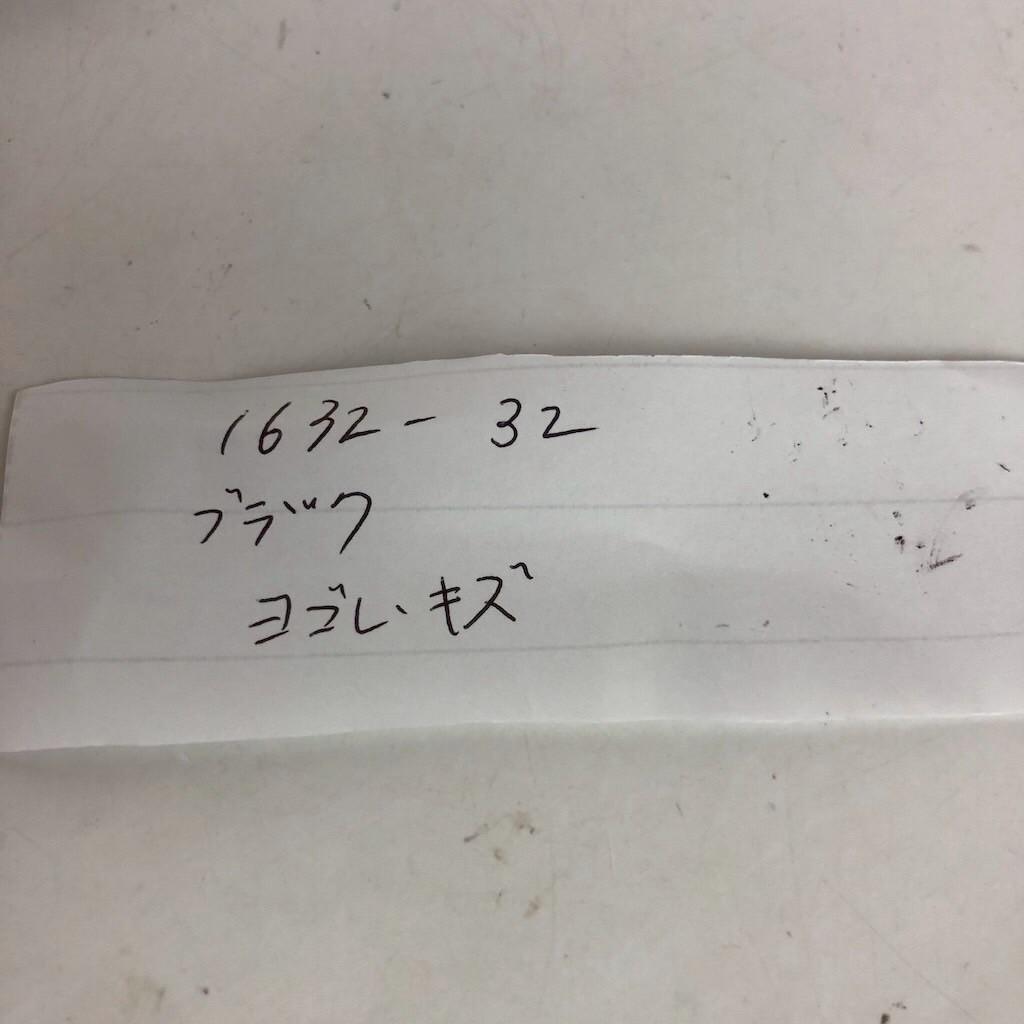 1632- 32
ブラック
ヨゴレ・キズ